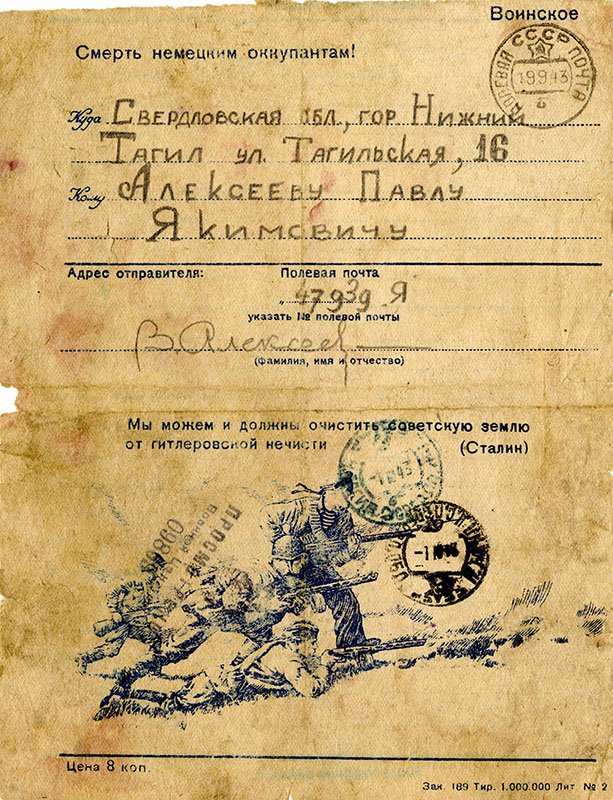 Воинское
Смерть немецким оккупантам!
ПОЛЕВАЯ СССР ПОЧТА
19 9 43
Куда Свердловская обл., гор Нижний
Тагил ул. Тагильская, 16
Кому Алексееву Павлу
Якимовичу
Адрес отправителя: Полевая почта
„ 47939 Я
указать № полевой почты
В. Алексеев
(фамилия, имя и отчество)
Мы можем и должны очистить советскую землю
от гитлеровской нечисти (Сталин)
ПРОСМ
Военной Ценз
098
Цена 8 коп.
Зак. 189 Тир. 1.000.000 Лит. № 2